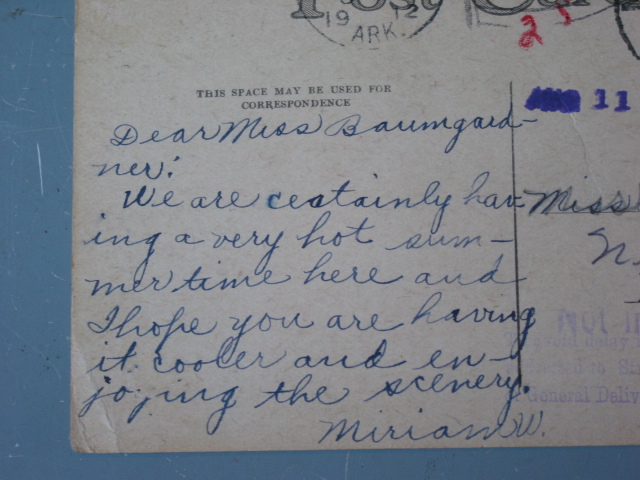 Post Card
19 12
ARK.
23
THIS SPACE MAY BE USED FOR
CORRESPONDENCE
AUG 11
Dear Miss Baumgard-
ner:
We are ceatainly hav-
ing a very hot sum-
mer time here and
I hope you are having
it cooler and en-
joying the scenery.
Miriam W.
Miss
N.
General Deliv